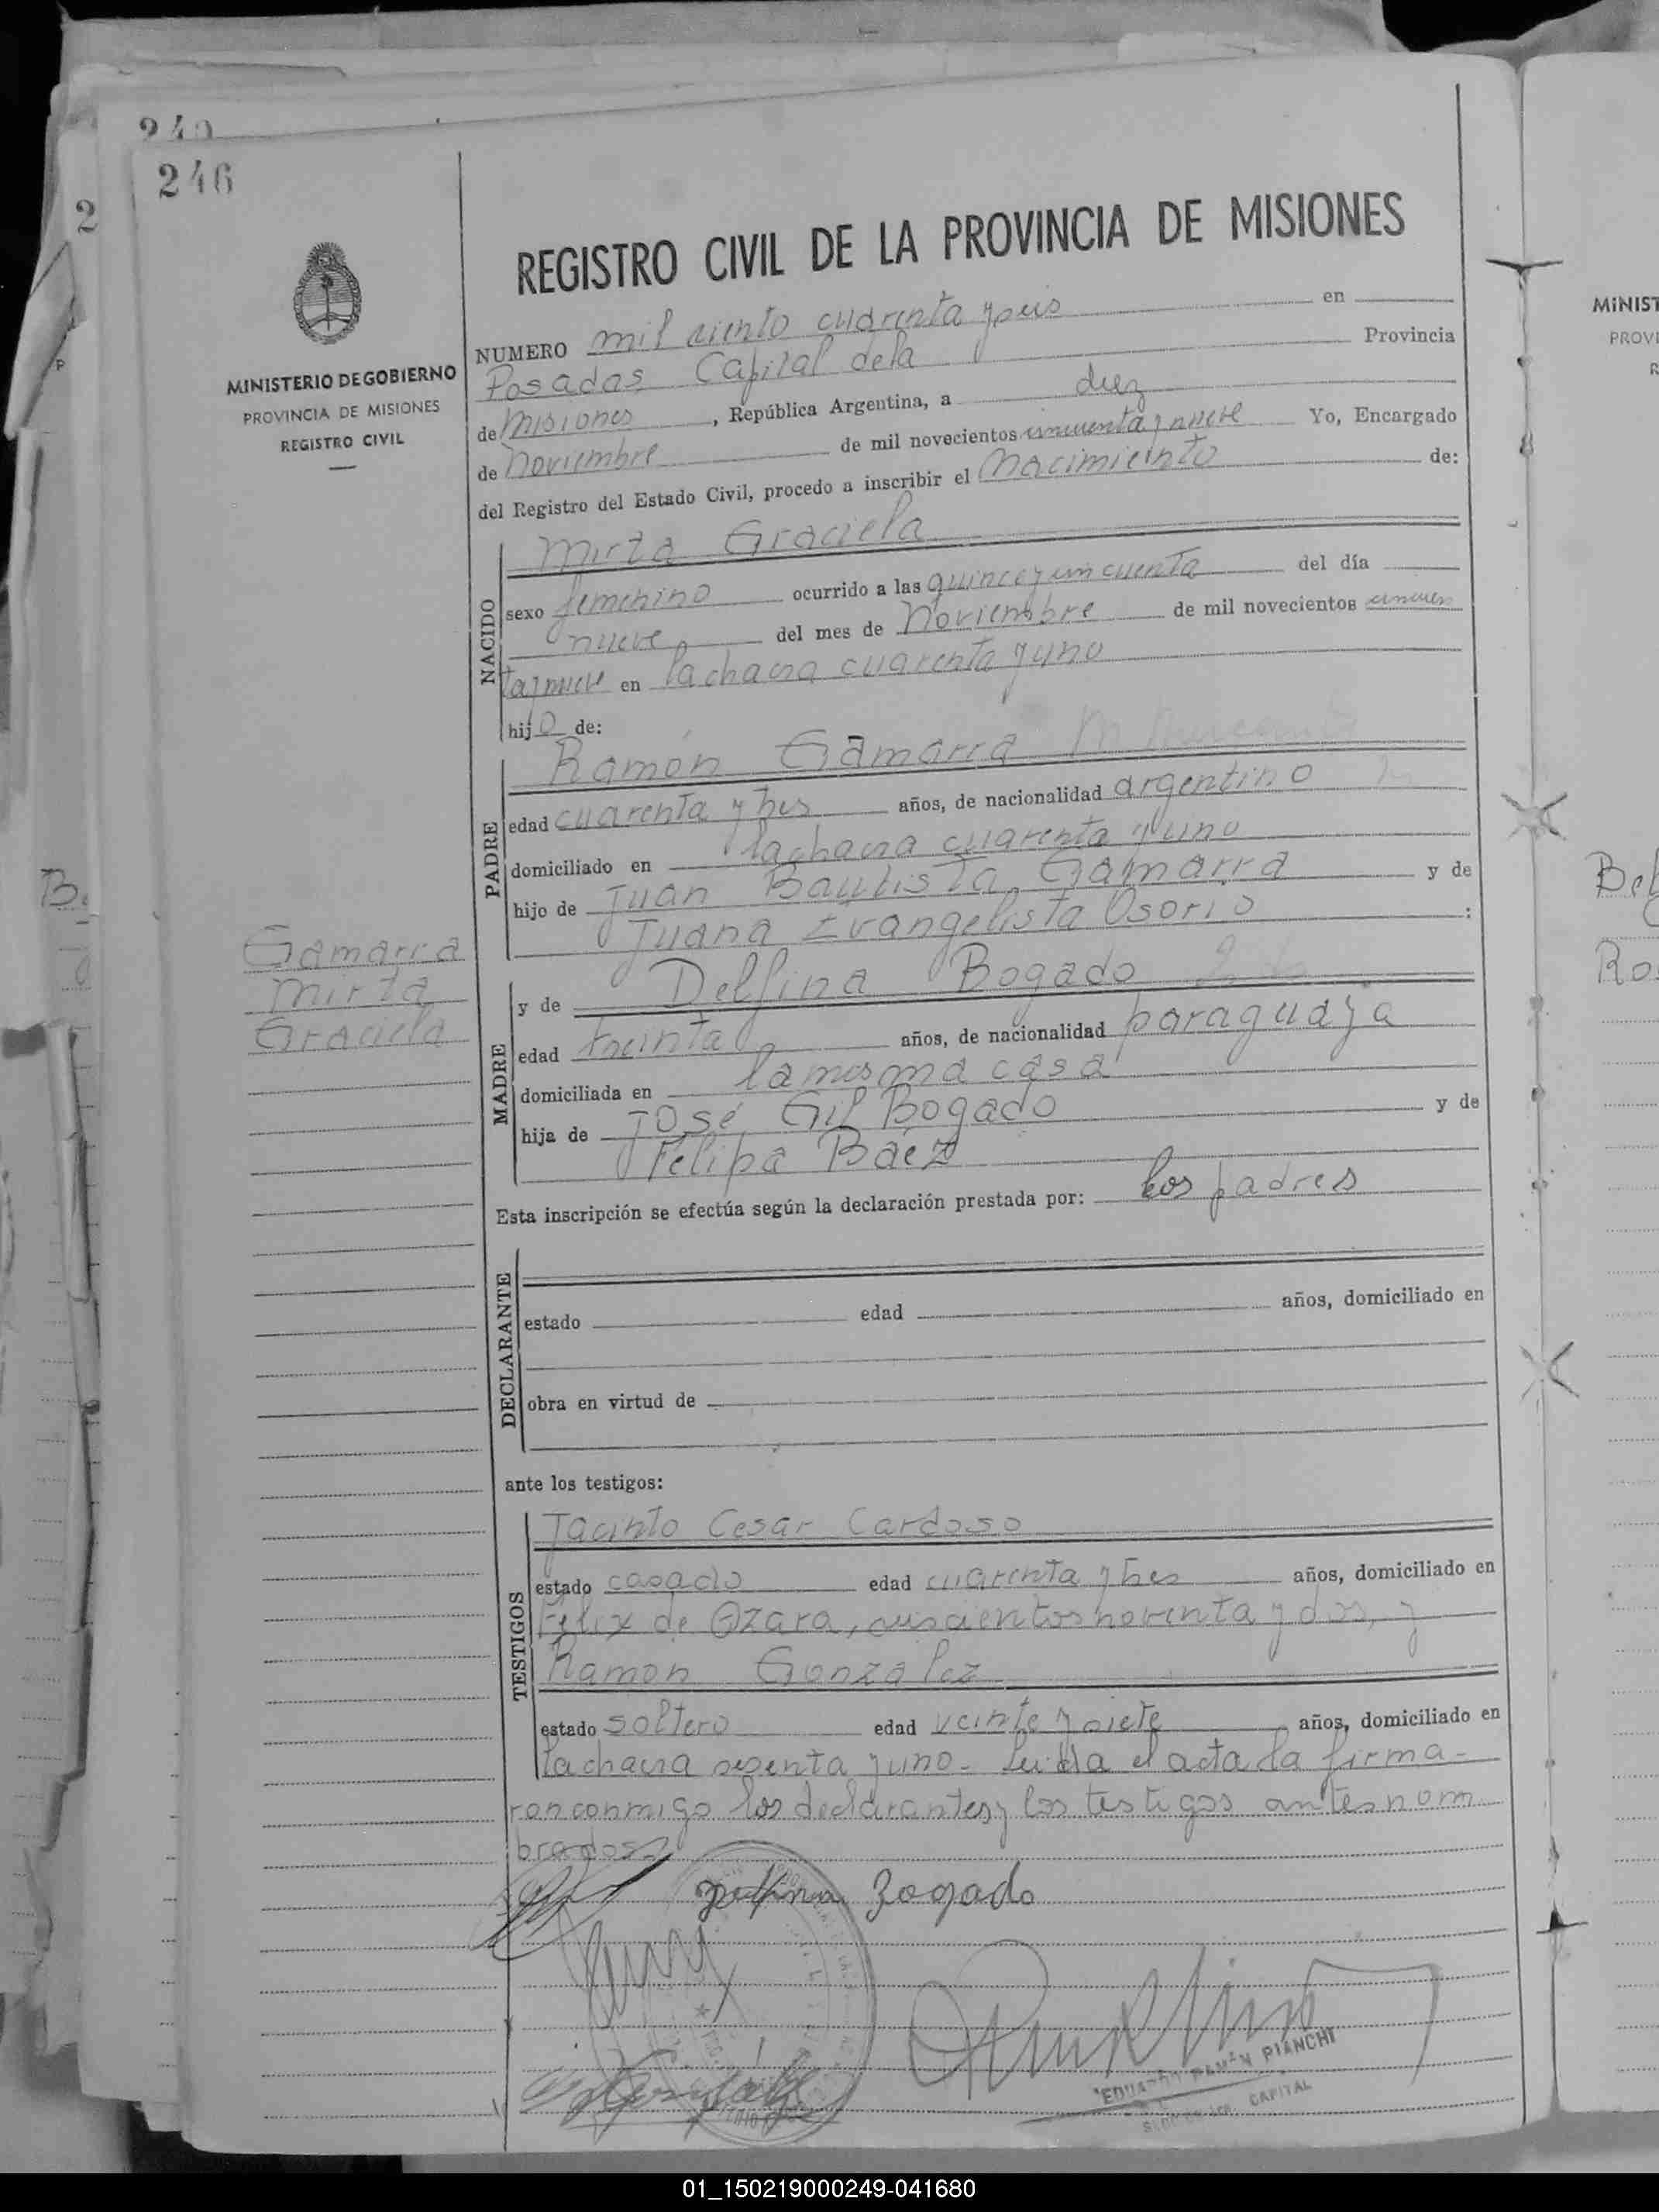 240
246
2
MINISTERIO DE GOBIERNO
PROVINCIA DE MISIONES
REGISTRO CIVIL
REGISTRO CIVIL DE LA PROVINCIA DE MISIONES
NUMERO mil ciento cuarenta y seis en
Posadas, Capital de la Provincia
de Misiones, República Argentina, a diez
de Noviembre de mil novecientos cincuenta y nueve Yo, Encargado
del Registro del Estado Civil, procedo a inscribir el Nacimiento de:
NACIDO
Mirta Graciela
sexo femenino ocurrido a las quince y cincuenta del día
nueve del mes de Noviembre de mil novecientos cincuen
ta y nueve en la chacra cuarenta y uno
hijo de:
PADRE
Ramón Gamarra
edad cuarenta y tres años, de nacionalidad argentino
domiciliado en la chacra cuarenta y uno
hijo de Juan Bautista Gamarra y de
Juana Evangelista Osorio :
Gamarra
Mirta
Graciela
MADRE
y de Delfina Bogado
edad treinta años, de nacionalidad paraguaya
domiciliada en la misma casa
hija de José Gil Bogado y de
Felipa Báez
Esta inscripción se efectúa según la declaración prestada por: los padres
DECLARANTE
estado edad años, domiciliado en
obra en virtud de
ante los testigos:
TESTIGOS
Jacinto Cesar Cardoso
estado casado edad cuarenta y tres años, domiciliado en
Félix de Azara, seiscientos noventa y dos, y
Ramon Gonzalez
estado soltero edad veinte y siete años, domiciliado en
la chacra sesenta y uno - Leída el acta la firma-
ron conmigo los declarantes y los testigos antes nom
brados
Delfina Bogado
EDUARDO RAMÓN PIANCHI
CAPITAL
MINIST
PROVI
R
Bel
Ro
01_150219000249-041680